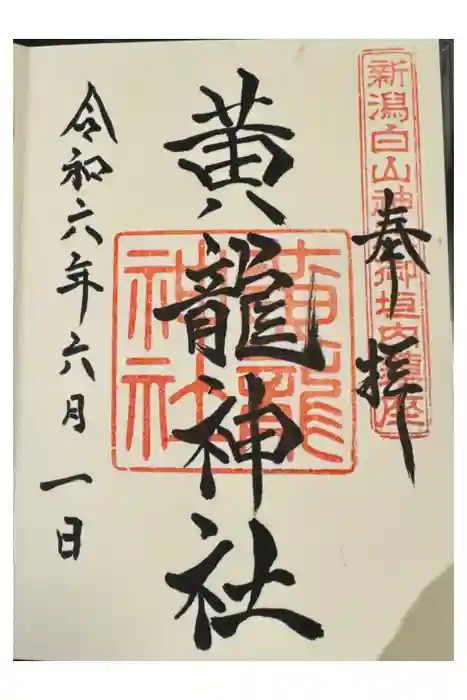 新潟白山神社御垣内鎮座
奉拝
黄龍神社
黄龍神社
令和六年六月一日